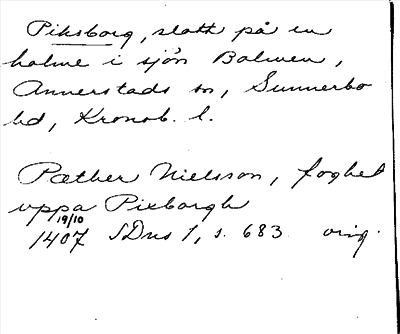 Piksborg, slott på en
holme i sjön Bolmen,
Annerstads sn, Sunnerbo
hd, Kronob. l.
Pæther Nielsson, foghet
uppa Pixborgh
19/10
1407 SDns 1, s. 683 orig.